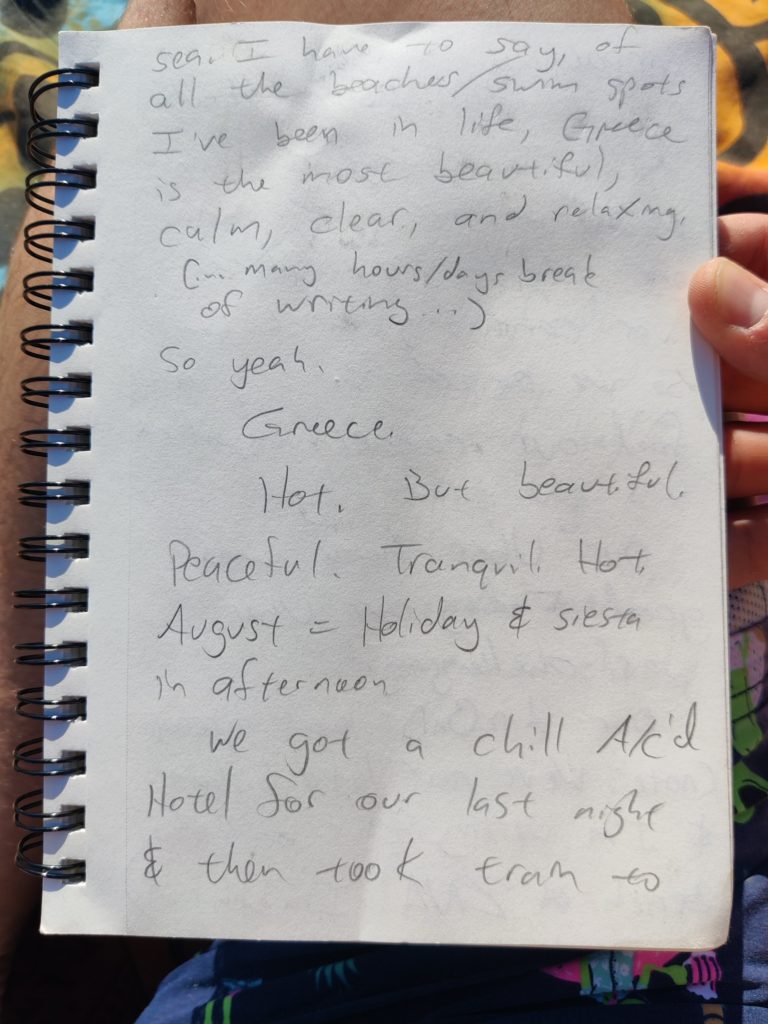 sea. I have to say, of
all the beaches/swim spots
I've been in life, Greece
is the most beautiful,
calm, clear, and relaxing.
(... many hours/days break
of writing...)
So yeah.
Greece.
Hot. But beautiful.
Peaceful. Tranquil. Hot.
August = Holiday & siesta
in afternoon
We got a chill A/c'd
Hotel for our last night
& then took tram to